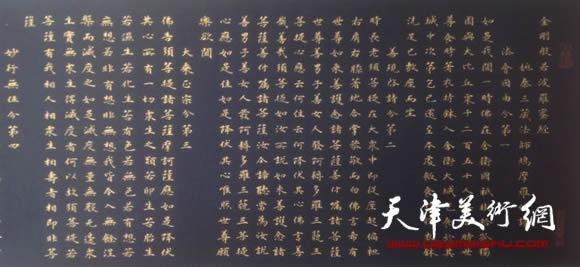 金剛般若波羅蜜經
姚秦三藏法師鳩摩羅
法會因由分第一
如是我聞一時佛在舍衛國祇
園與大比丘眾千二百五十人俱爾時世
尊食時著衣持鉢入舍衛大城乞食於其
城中次第乞已還至本處飯食訖收衣鉢
洗足已敷座而坐
善現啟請分第二
時長老須菩提在大眾中即從座起偏袒
右肩右膝著地合掌恭敬而白佛言希有
世尊如來善護念諸菩薩善付囑諸菩薩
世尊善男子善女人發阿耨多羅三藐三
菩提心應云何住云何降伏其心佛言善
哉善哉須菩提如汝所說如來善護念諸
菩薩善付囑諸菩薩汝今諦聽當為汝說
善男子善女人發阿耨多羅三藐三菩提
心應如是住如是降伏其心唯然世尊願
樂欲聞
大乘正宗分第三
佛告須菩提諸菩薩摩訶薩應如是降伏
其心所有一切眾生之類若卵生若胎生
若濕生若化生若有色若無色若有想若無
想若非有想非無想我皆令入無餘涅
槃而滅度之如是滅度無量無數無邊眾
生實無眾生得滅度者何以故須菩提若
菩薩有我相人相眾生相壽者相即非菩
薩
妙行無住分第四
天津美術網